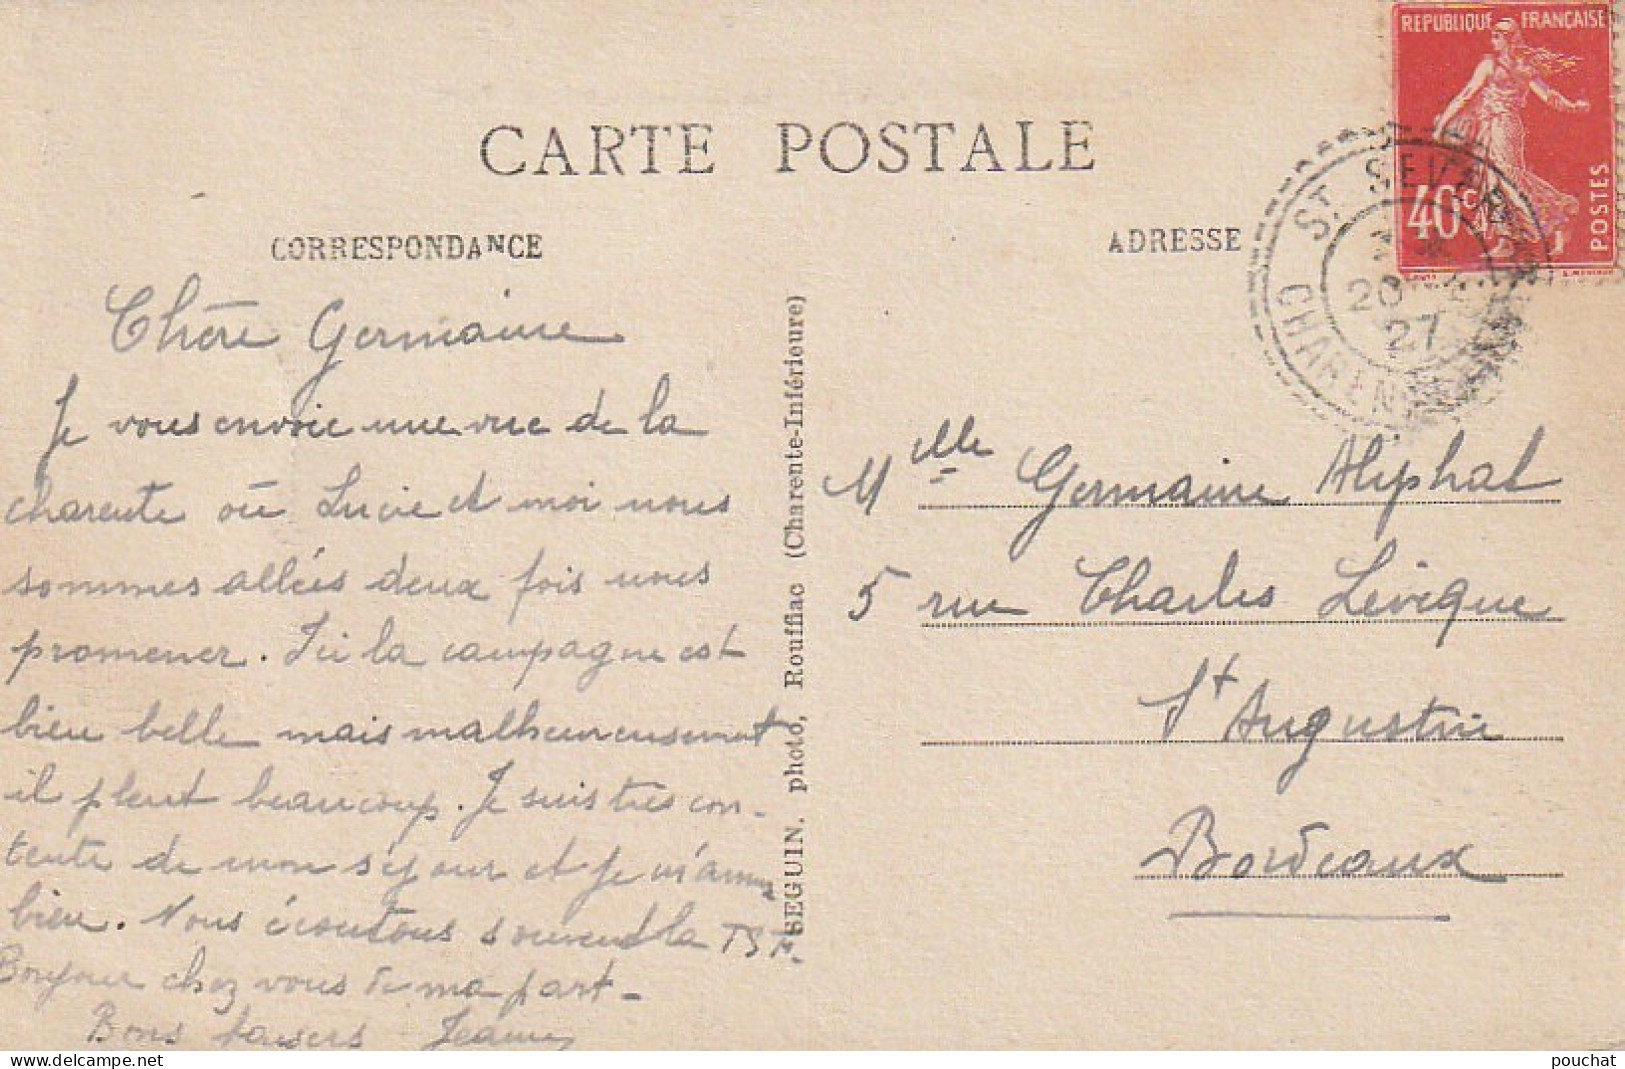 REPUBLIQUE FRANÇAISE
40c
POSTES
ST. SEVER
20
27
CHARENTE
CARTE POSTALE
CORRESPONDANCE
ADRESSE
Chère Germaine
Je vous envoie une vue de la
charente où Lucie et moi nous
sommes allées deux fois nous
promener. Ici la campagne est
bien belle mais malheureusement
il pleut beaucoup. Je suis très con-
tente de mon séjour et je m'amuse
bien. Nous écoutons souvent la TSF.
Bonjour chez vous de ma part -
Bons baisers Jeanne
SEGUIN. photo, Rouffiac (Charente-Inférieure)
Mlle Germaine Aliphat
5 rue Charles Lévêque
St Augustin
Bordeaux
pouchat